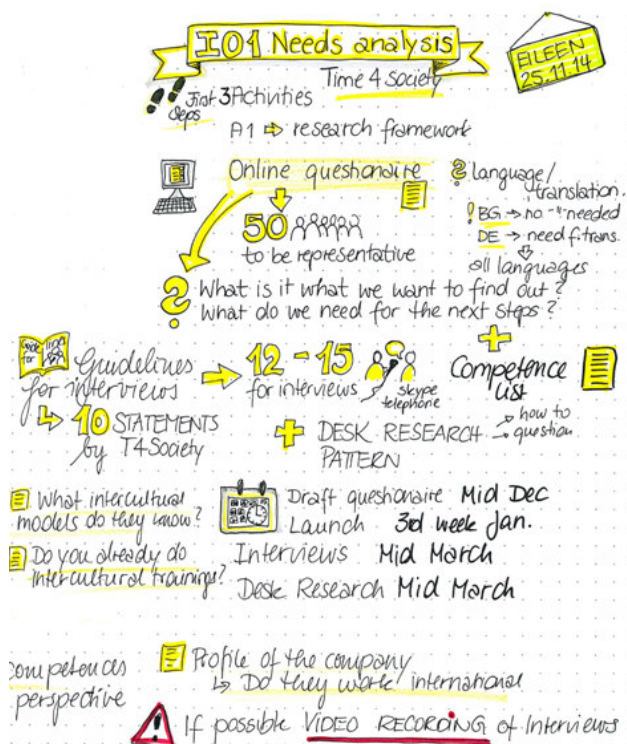 IO1 Needs analysis
EILEEN
25.11.14
Time 4 Society
First 3 Activities
Steps
A1 ⇨ research framework
Online questionaire
50
to be representative
? language/
translation.
! BG → no -"- needed
DE → need f. trans.
all languages
? What is it what we want to find out?
What do we need for the next steps?
Guide
for
Guidelines
for interviews
10 STATEMENTS
by T4Society
12 - 15
for interviews
skype
telephone
+
Competence
List
+ DESK RESEARCH
PATTERN
how to
question
What intercultural
models do they know?
Do you already do
intercultural trainings?
Draft questionaire Mid Dec
Launch 3rd week Jan.
Interviews Mid March
Desk Research Mid March
competences
perspective
Profile of the company
↳ Do they work international
! If possible VIDEO RECORDING of Interviews